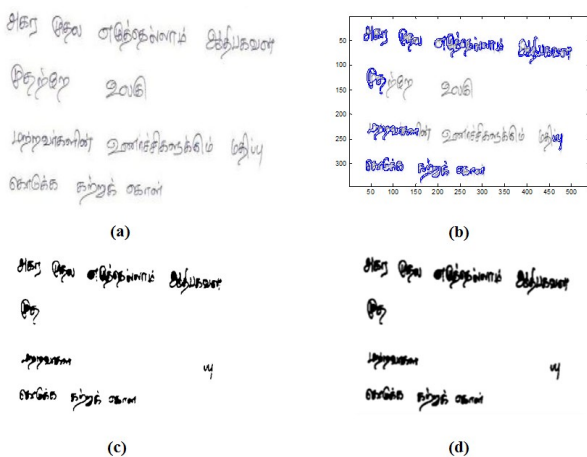 அகர முதல எழுத்தெல்லாம் ஆதிபகவன்
முதற்றே உலகு
மற்றவர்களின் உணர்ச்சிகளுக்கும் மதிப்பு
கொடுக்க கற்றுக் கொள்
(a)
50
100
150
200
250
300
அகர முதல எழுத்தெல்லாம் ஆதிபகவன்
முதற்றே உலகு
மற்றவர்களின் உணர்ச்சிகளுக்கும் மதிப்பு
கொடுக்க கற்றுக் கொள்
50 100 150 200 250 300 350 400 450 500
(b)
அகர முதல எழுத்தெல்லாம் ஆதிபகவன்
முத
மற்றவர்கள பு
கொடுக்க கற்றுக் கொள்
(c)
அகர முதல எழுத்தெல்லாம் ஆதிபகவன்
முத
மற்றவர்கள பு
கொடுக்க கற்றுக் கொள்
(d)